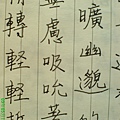 曠幽邈的
慮吸吮著
轉輕輕